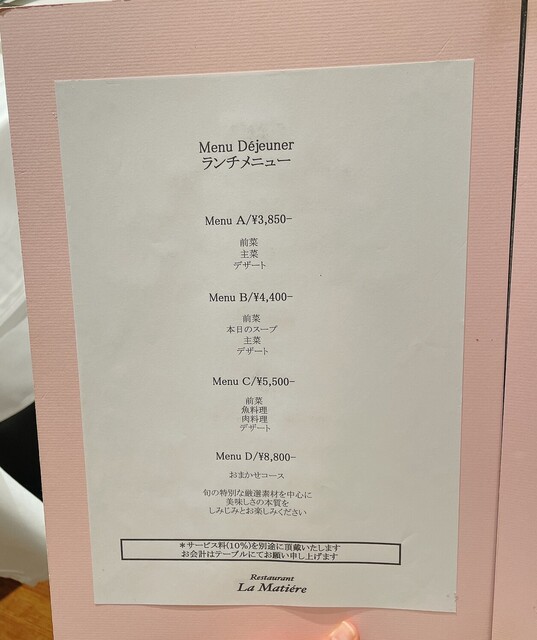 Menu Déjeuner
ランチメニュー
Menu A/¥3,850-
前菜
主菜
デザート
Menu B/¥4,400-
前菜
本日のスープ
主菜
デザート
Menu C/¥5,500-
前菜
魚料理
肉料理
デザート
Menu D/¥8,800-
おまかせコース
旬の特別な厳選素材を中心に
美味しさの本質を
しみじみとお楽しみください
＊サービス料(10%)を別途に頂戴いたします
お会計はテーブルにてお願い申し上げます
Restaurant
La Matiére